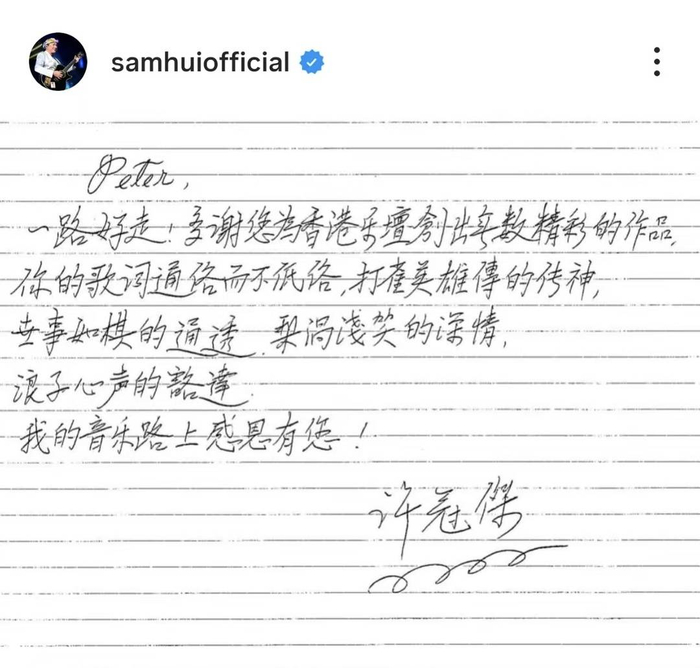 samhuiofficial
Peter,
一路好走！多谢您为香港乐壇創出无数精彩的作品,
你的歌词通俗而不低俗,打雀英雄傳的传神,
世事如棋的通透,梨涡淺笑的深情,
浪子心声的豁達.
我的音乐路上感恩有您！
许冠傑